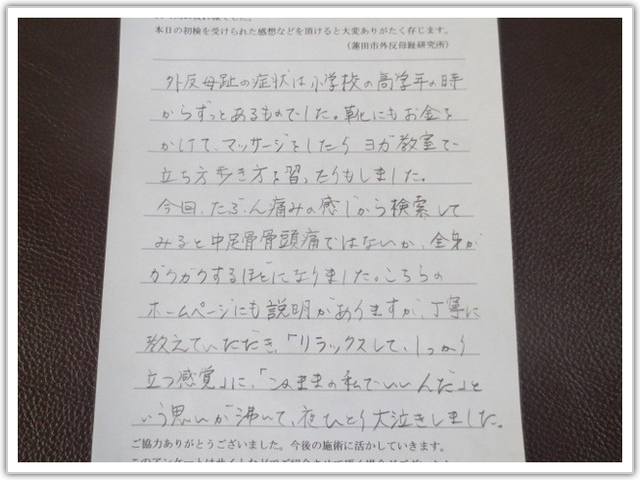 本日の初検を受けられた感想などを頂けると大変ありがたく存じます。
(蓮田市外反母趾研究所)
外反母趾の症状は小学校の高学年の時
からずっとあるものでした。靴にもお金を
かけて、マッサージをしたりヨガ教室で
立ち方歩き方を習ったりもしました。
今回、たぶん痛みの感じから検索して
みると中足骨骨頭痛ではないか、全身が
ガクガクするほどになりました。こちらの
ホームページにも説明がありますが、丁寧に
教えていただき、「リラックスして、しっかり
立つ感覚」に、「このままの私でいいんだ」と
いう思いが沸いて、夜ひとり大泣きしました。
ご協力ありがとうございました。今後の施術に活かしていきます。